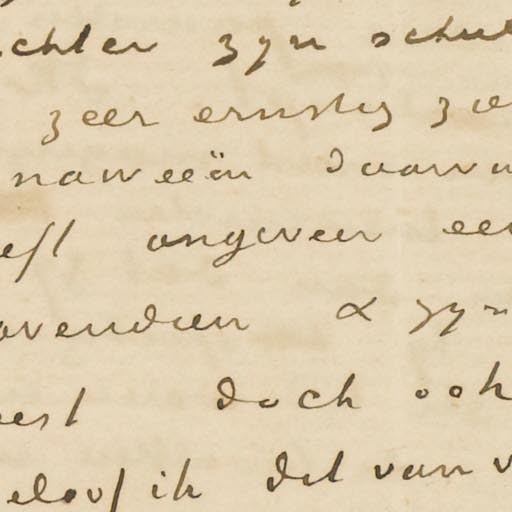 achter zyn schul
zeer ernstig zo
naweeën daarva
eeft ongeveer een
ovendien & zyn
eest doch ook
eloof ik dat van v